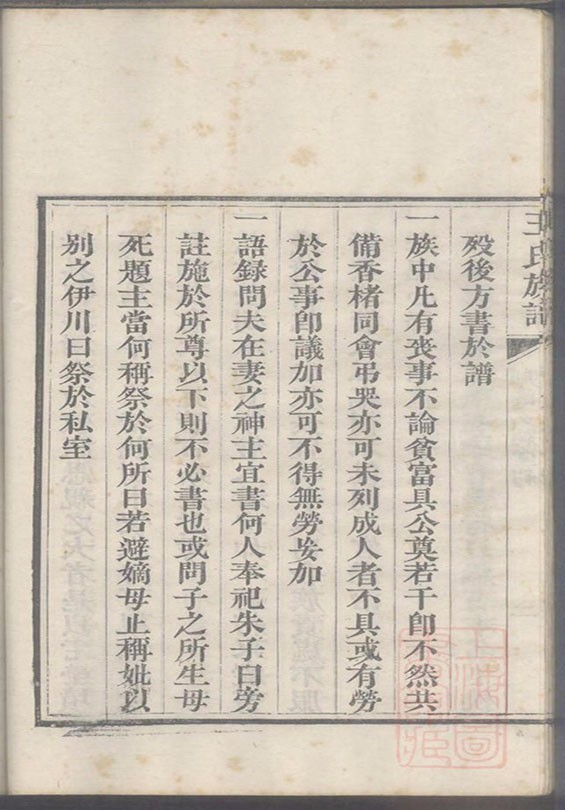 王氏族譜
歿後方書於譜
一族中凡有喪事不論貧富具公奠若干卽不然共
備香楮同會弔哭亦可未列成人者不具或有勞
於公事卽議加亦可不得無勞妄加
一語録問夫在妻之神主宜書何人奉祀朱子曰旁
註施於所尊以下則不必書也或問子之所生母
死題主當何稱祭於何所曰若避嫡母止稱妣以
別之伊川曰祭於私室